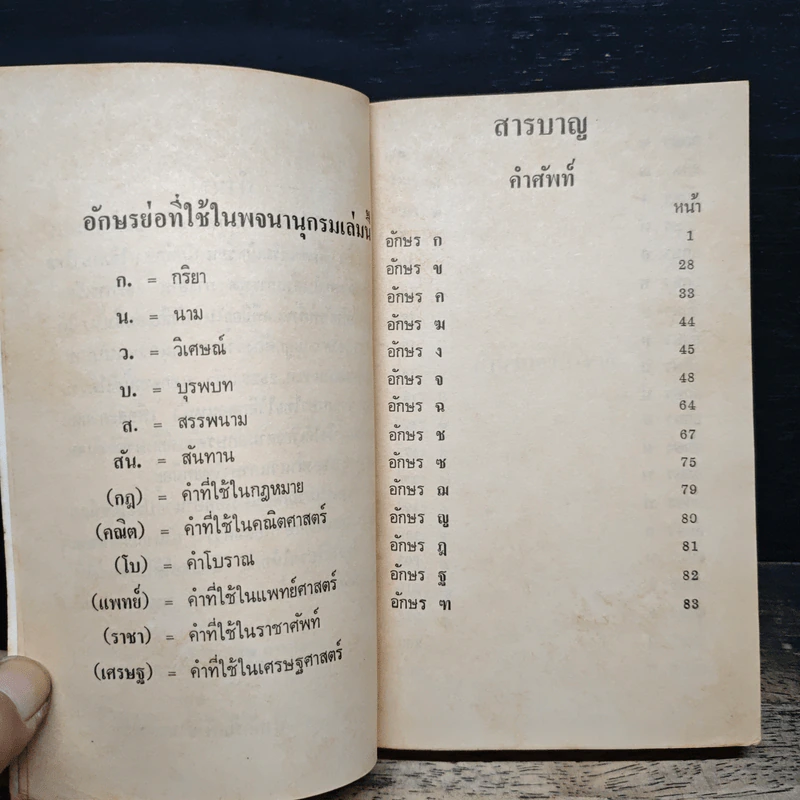 อักษรย่อที่ใช้ในพจนานุกรมเล่มนี้
ก. = กริยา
น. = นาม
ว. = วิเศษณ์
บ. = บุรพบท
ส. = สรรพนาม
สัน. = สันทาน
(กฎ) = คำที่ใช้ในกฎหมาย
(คณิต) = คำที่ใช้ในคณิตศาสตร์
(โบ) = คำโบราณ
(แพทย์) = คำที่ใช้ในแพทย์ศาสตร์
(ราชา) = คำที่ใช้ในราชาศัพท์
(เศรษฐ) = คำที่ใช้ในเศรษฐศาสตร์
สารบาญ
คำศัพท์
หน้า
อักษร ก 1
อักษร ข 28
อักษร ค 33
อักษร ฆ 44
อักษร ง 45
อักษร จ 48
อักษร ฉ 64
อักษร ช 67
อักษร ซ 75
อักษร ฌ 79
อักษร ญ 80
อักษร ฎ 81
อักษร ฐ 82
อักษร ฑ 83